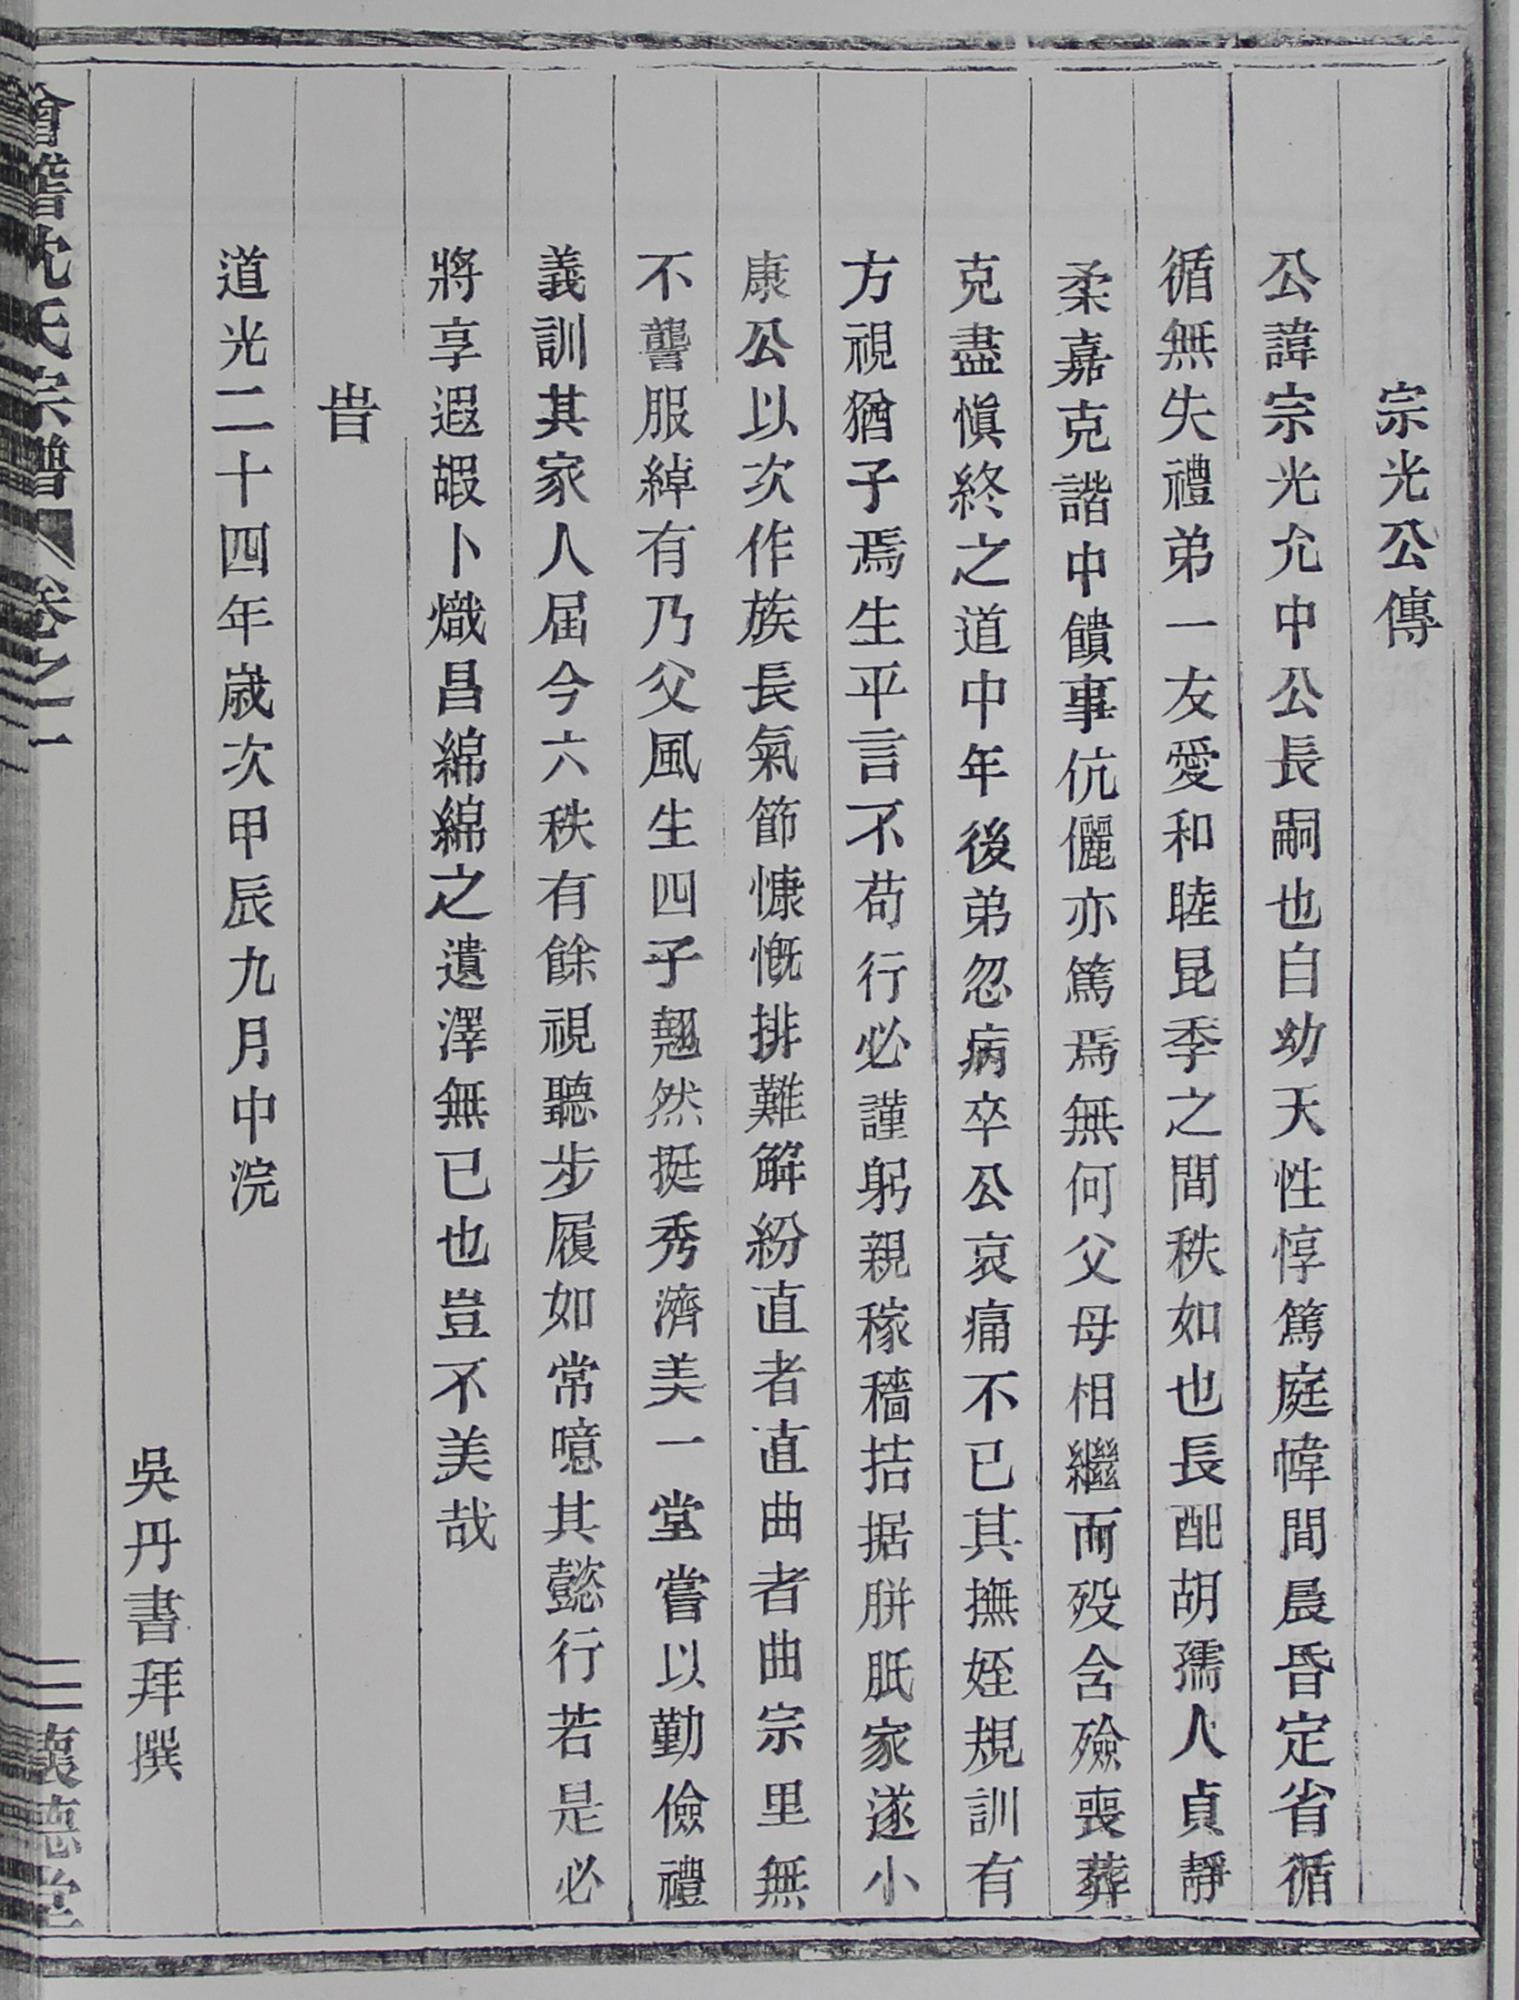 宗光公傳
公諱宗光允中公長嗣也自幼天性惇篤庭幃間晨昏定省循
循無失禮弟一友愛和睦昆季之間秩如也長配胡孺人貞靜
柔嘉克諧中饋事伉儷亦篤焉無何父母相繼而歿含殮喪葬
克盡愼終之道中年後弟忽病卒公哀痛不已其撫姪規訓有
方視猶子焉生平言不苟行必謹躬親稼穡拮据胼胝家遂小
康公以次作族長氣節慷慨排難解紛直者直曲者曲宗里無
不讋服綽有乃父風生四子翹然挺秀濟美一堂嘗以勤儉禮
義訓其家人屆今六秩有餘視聽步履如常噫其懿行若是必
將享遐嘏卜熾昌綿綿之遺澤無已也豈不美哉
旹
道光二十四年歲次甲辰九月中浣
吳丹書拜撰
會稽沈氏宗譜 卷之一 二 懷德堂